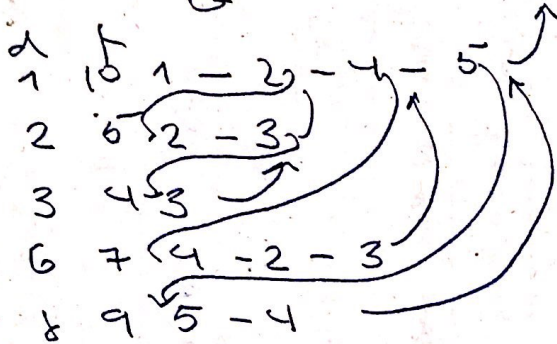 d f
1 10 1 - 2 - 4 - 5
2 5 2 - 3
3 4 3
6 7 4 - 2 - 3
8 9 5 - 4